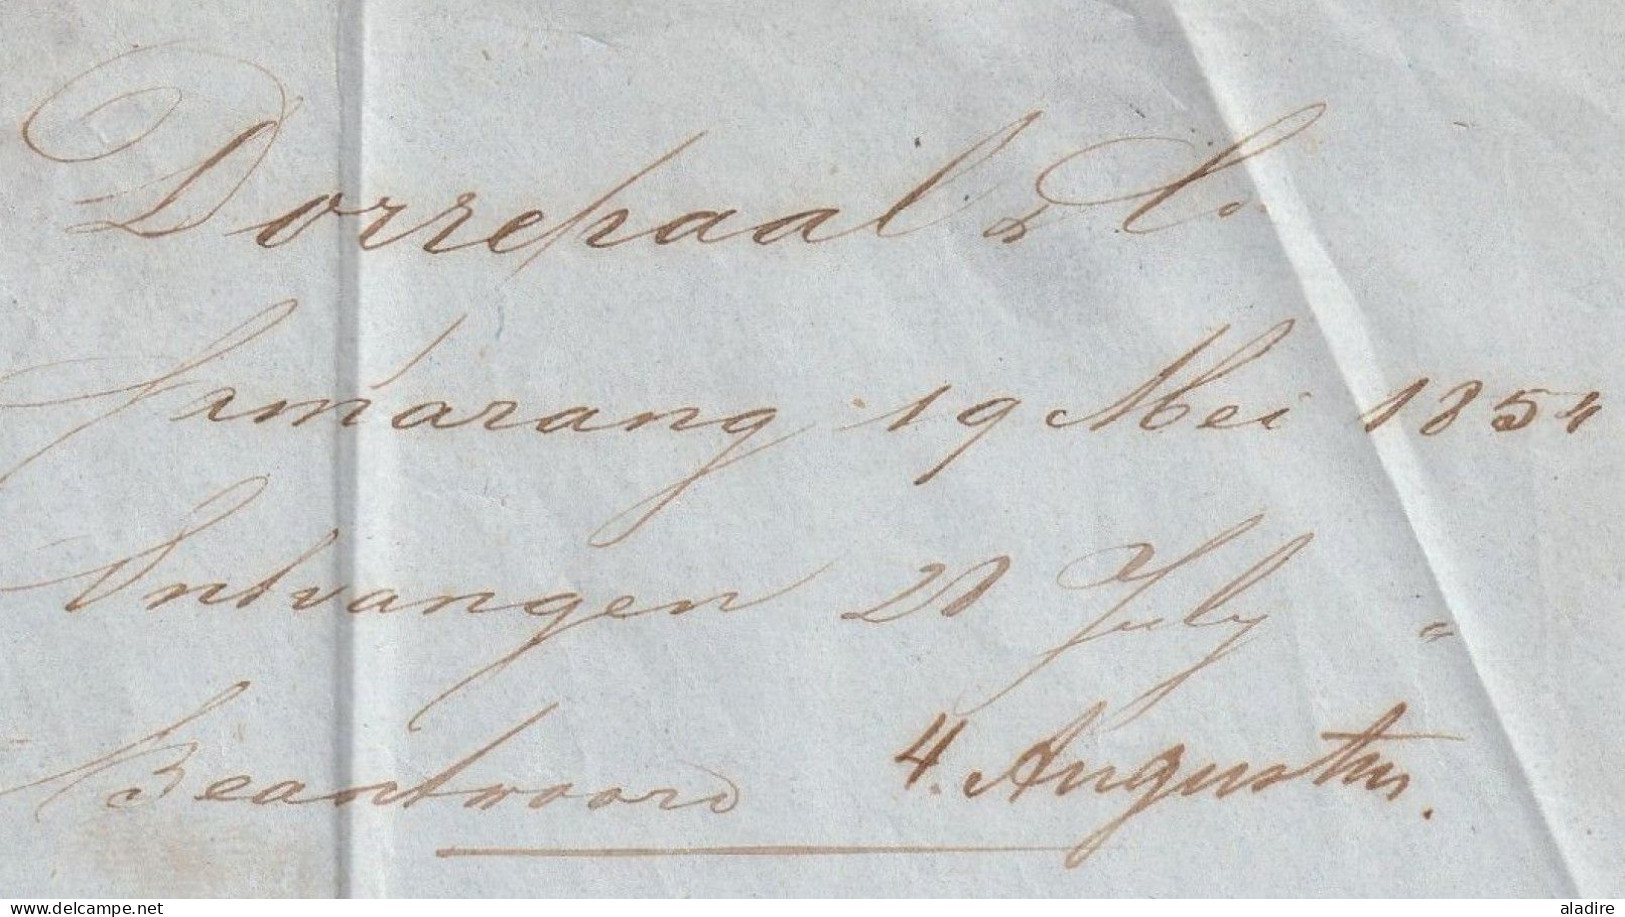 Dorrepaal & Co.
Semarang 19 Mei 1854
Ontvangen 28 July "
Beantwoord 4. Augustus.
delcampe.net
aladire